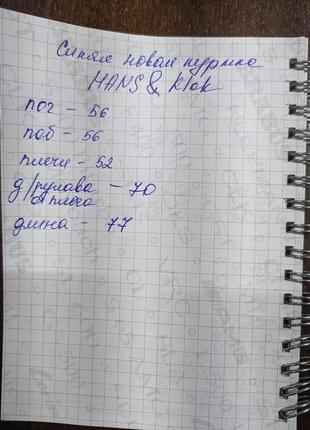 Синяя новая куртка
HANS & Klok
пог - 56
поб - 56
плечи - 52
д/рукава - 70
от плеча
длина - 77